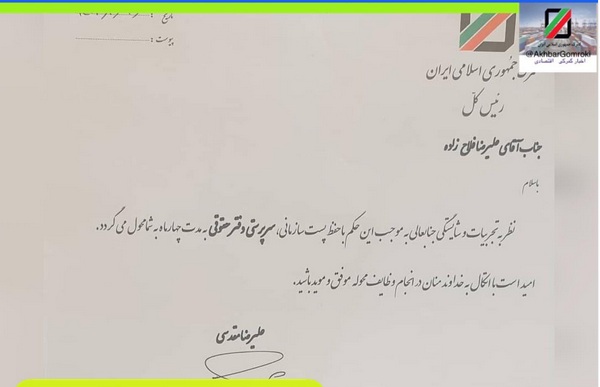 گمرک جمهوری اسلامی ایران
@AkhbarGomroki
اخبار گمرکی اقتصادی
تاریخ :
پیوست :
گمرک جمهوری اسلامی ایران
رئیس کل
جناب آقای علیرضا فلاح زاده
باسلام
نظر به تجربیات و شایستگی جنابعالی به موجب این حکم با حفظ پست سازمانی، سرپرستی دفتر حقوقی به مدت چهار ماه به شما محول می گردد.
امید است با اتکال به خداوند منان در انجام وظایف محوله موفق و موید باشید.
علیرضا مقدسی